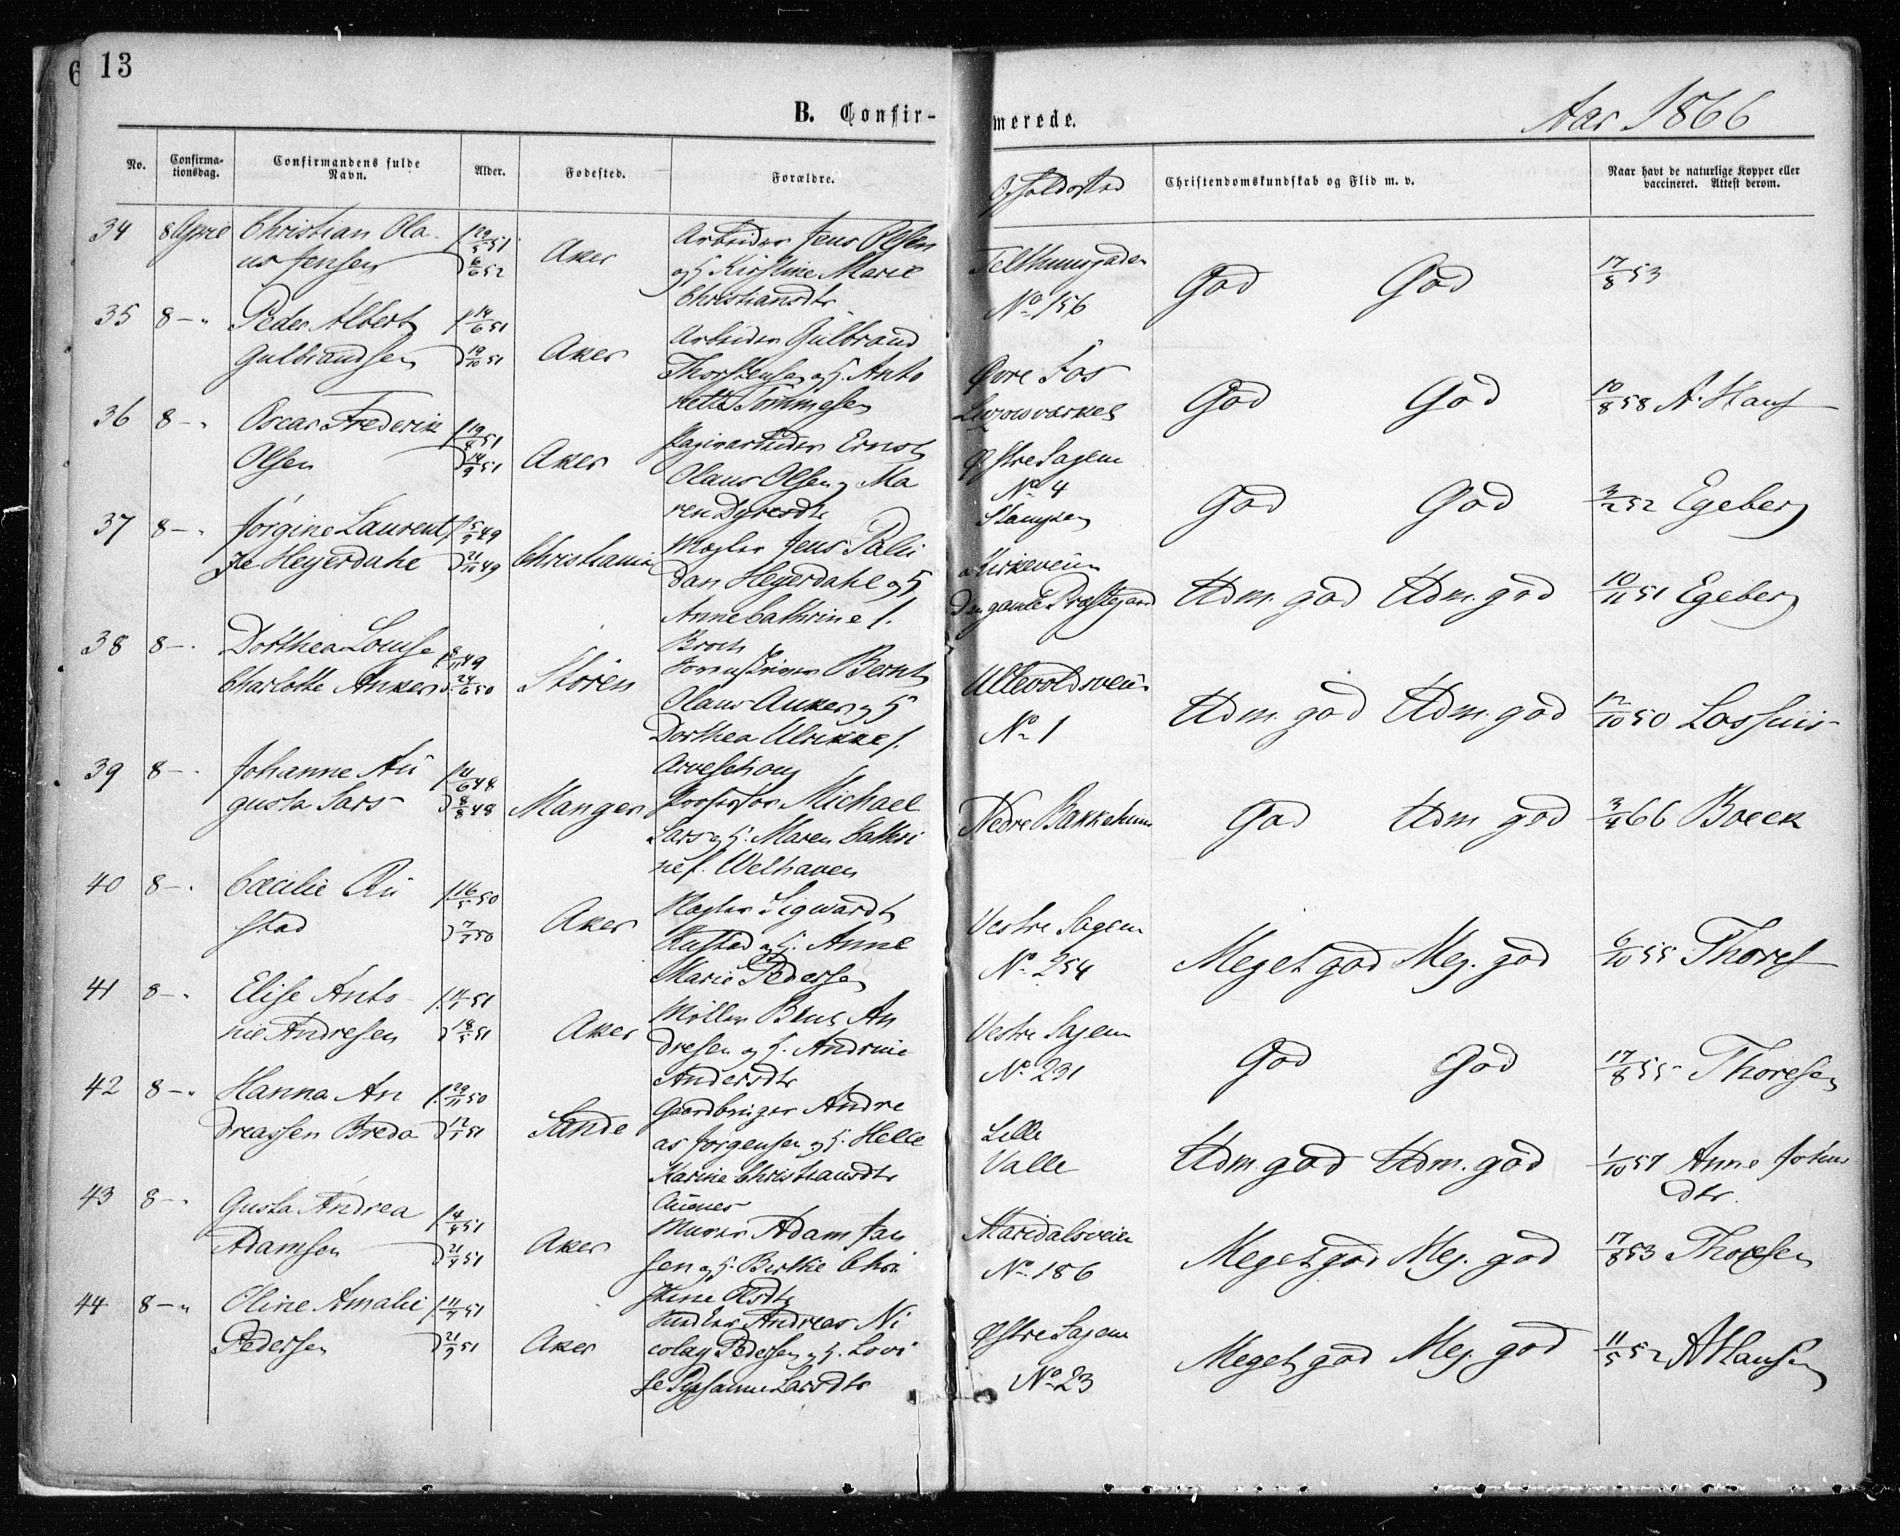 13
B. Confir-
merede.
Aar 1866
No.
Confirma-
tionsdag.
Confirmandens fulde
Navn.
Alder.
Fødested.
Forældre.
Opholdssted
Christendomskundskab og Flid m. v.
Naar havt de naturlige Kopper eller
vaccineret. Attest derom.
34 8 April Christian Ola-
us Jensen
6/6 52
Aker
Arbeider Jens Olsen
og H Kirstine Marie
Christiansdtr
Telthuusgaden
No 156
God God 17/8 53
35 8 - " Peder Albert
Gulbrandsen
f. 14/6 51
D 19/10 51
Aker
Arbeider Gulbrand
Thorstensen og H. Anto
nette Tommesen
Øvre Fos
God God 10/8 58 A. Hans
36 8 - " Oscar Frederik
Olsen
D 14/9 51
Aker
Papirarbeider Ernst
Olaus Olsen og Ma
ren Dyresdtr
Østre Sagene
No 4
Stampen
God God 3/2 52 Egeberg
37 8 - " Jørgine Laurent
ze Heyerdahl
D 21/10 49
Christiania
Mægler Jens Palu
dan Heyerdahl og H
Anne Cathrine f.
Broch
Kirkeveien
Den gamle Præstegaard
Udm. god Udm. god 10/11 51 Egeberg
38 8 - " Dorthea Louise
Charlotte Anker
D. 24/6 50
Støren
Bernt
Olaus Anker og H
Dorthea Ulrikke f.
Areschoug
Ullevoldsveien
No 1
Udm. god Udm. god 12/10 50 Lossius
39 8 - " Johanne Au
gusta Sars
D 8/8 48
Manger
Professor Michael
Sars og H. Maren Cathri
ne f. Welhaven
Nedre Bakkehuus
God Udm god 3/4 66 Boeck
40 8 - " Cæcilie Ru
stad
f. 16/5 50
D 7/7 50
Aker
Mægler Sigwardt
Rustad og H. Anne
Marie Pedersen
Vestre Sagene
No. 254
Meget god Meg. god 6/10 55 Thores
41 8 - " Elise Anto-
nie Andresen
D 18/5 51
Aker
Møller Bent An
dresen og H. Andrine
Andersdtr
Vestre Sagene
No. 231
God God 17/8 55 Thoresen
42 8 - " Hanna An
dreassen Breda
f. 29/11 50
Sande
Gaardbruger Andre
as Jørgensen og H. Helle
Karine Christiansdtr
Lille
Valle
Udm. god Udm. god 1/10 57 Anne Johns
dtr.
43 8 - " Gusta Andrea
Adamsen
Aker
Murer Adam Jan
sen og H. Berthe Chri
stine Olsdtr
Maridalsveien
No. 186
Meget god Meg. god 17/8 53 Thoresen
44 8 - " Oline Amalie
Pedersen
Aker
Andreas Ni
colay Pedersen og H. Lovi
se Susanne Larsdtr
Østre Sagene
No 23
Meget god Meg. god 11/5 52 A Hansen